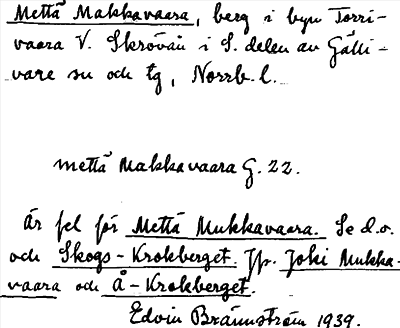 Mettä Makkavaara, berg i byn Torri-
vaara V. Skröván i S. delen av Gälli-
vare sn och tg, Norrb. l.
mettä Makkavaara G. 22.
Är fel för Mettä Mukkavaara. Se d.o.
och Skogs-Krokberget. Jfr. Joki Mukka-
vaara och Å-Krokberget.
Edvin Brännström 1939.